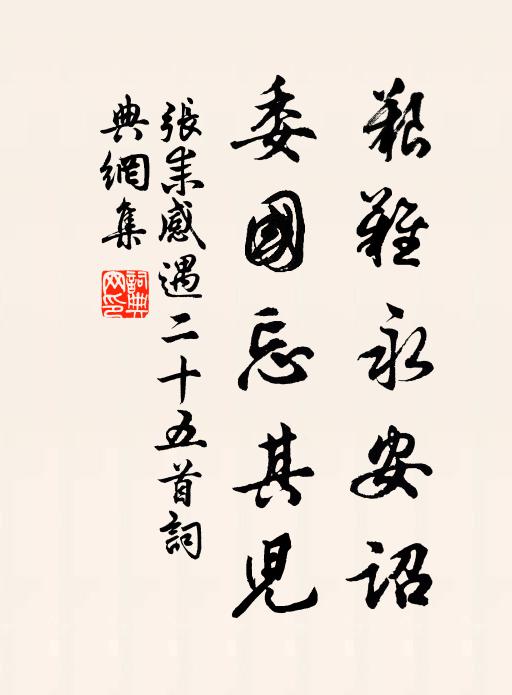 艱難永安詔
委國忘其児
張耒感遇二十五首詞
典網集
詞典網印